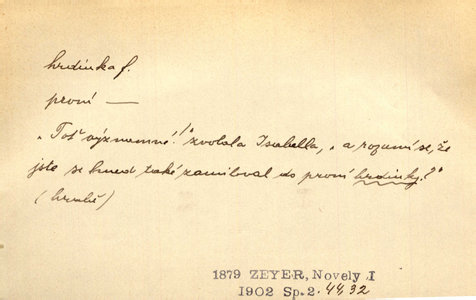 hrdinka f.
první —
„Toť významné!" zvolala Isabella, „a rozumí se, že
jste se hned také zamiloval do první hrdinky?"
(hraběti)
1879 ZEYER, Novely I
1902 Sp. 2. 44, 32